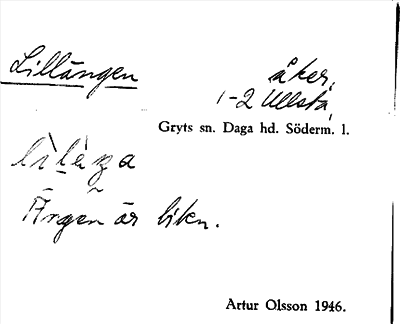 Lillängen
åker,
1-2 Ullsta,
Gryts sn. Daga hd. Söderm. l.
Ängen är liten.
Artur Olsson 1946.